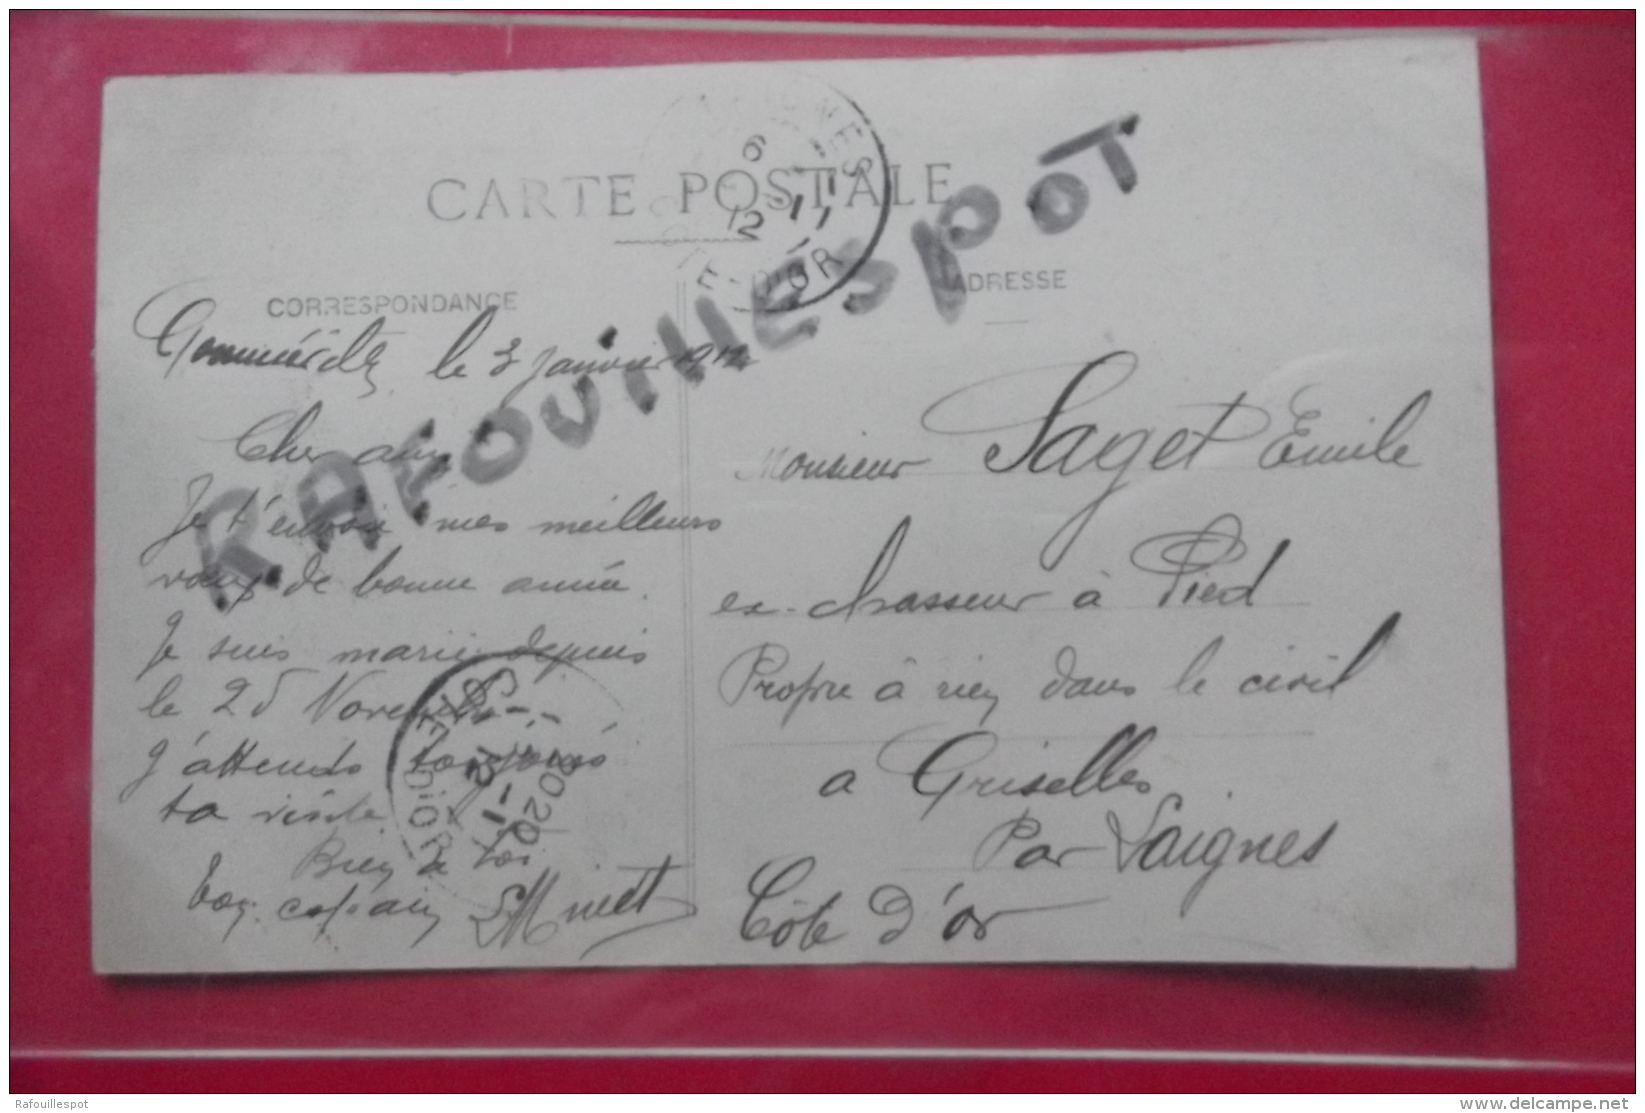 CARTE POSTALE
CORRESPONDANCE
le 3 Janvier 1912
Cher ami
Je t'envoie mes meilleurs
voeux de bonne année.
Je suis marié depuis
le 25 Novembre
J'attends toujours
ta visite
Bien à toi
Ton copain Minet
ADRESSE
Monsieur Saget Emile
ex-chasseur à Pied
Propre à rien dans le civil
a Griselles
Par Laignes
Côte d'or
RAFOUILLESPOT
6
12
CÔTE-D'OR
Rafouillespot
delcampe.net